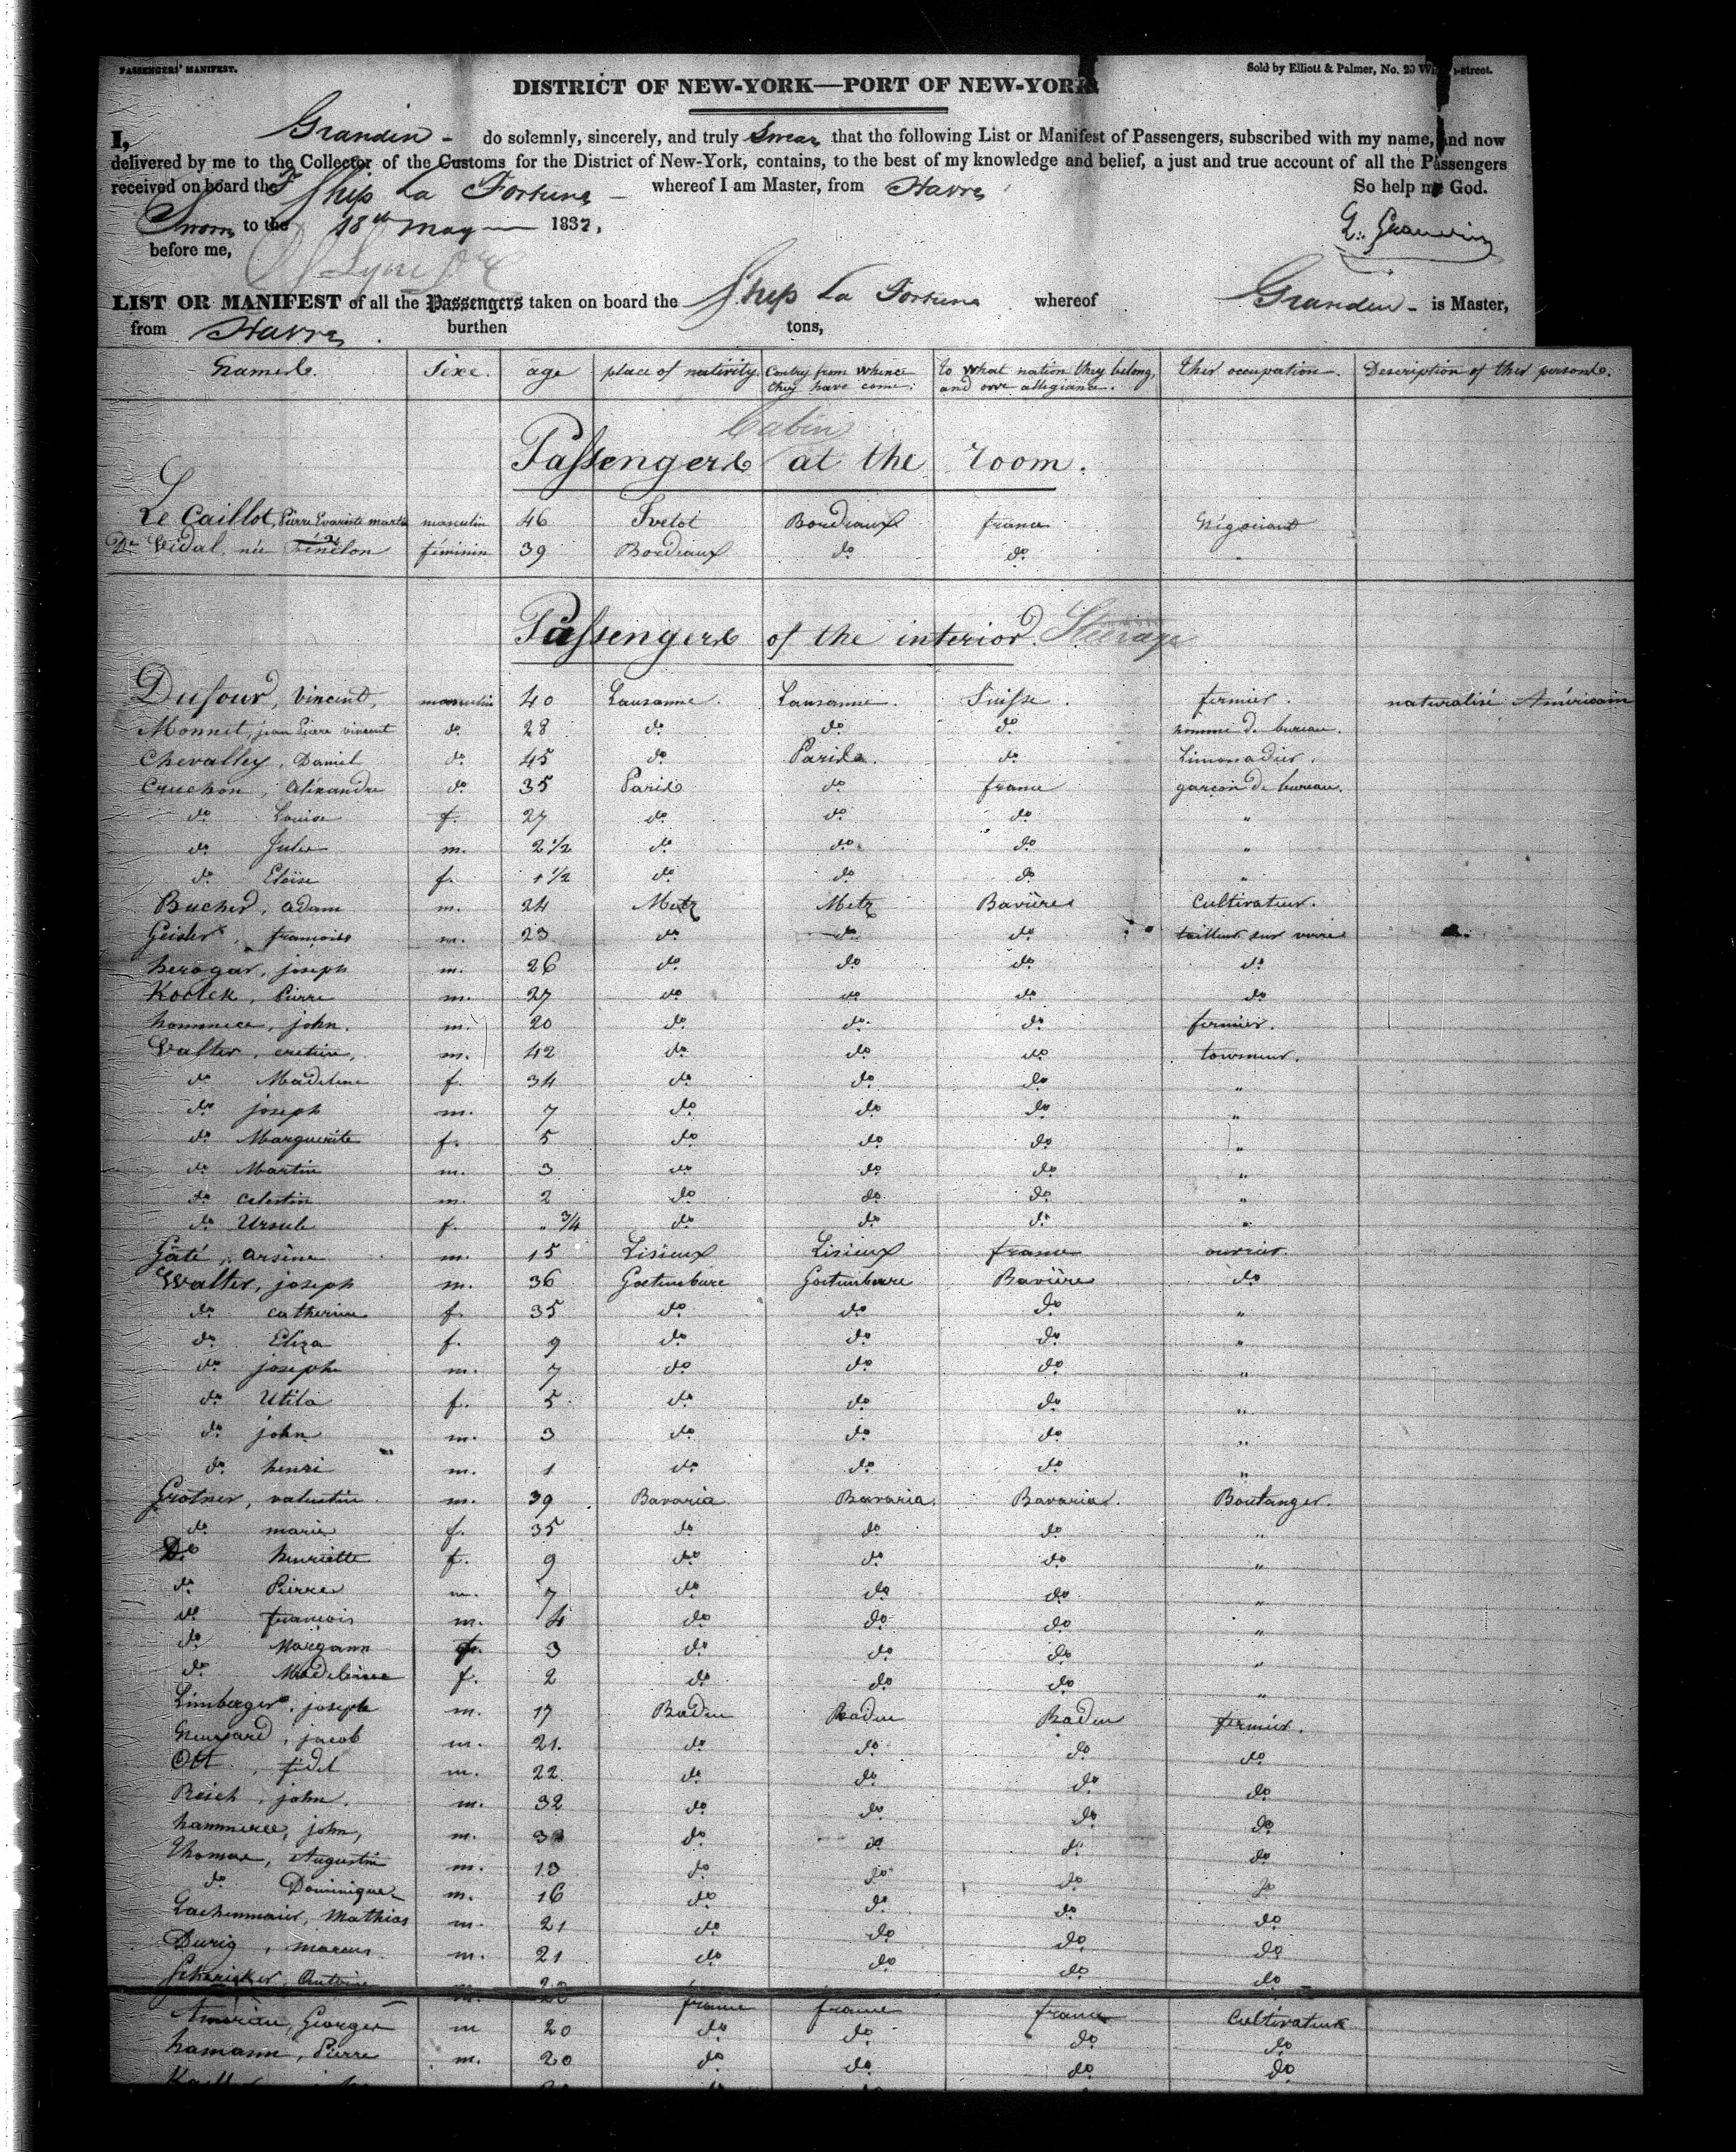 PASSENGERS' MANIFEST.
Sold by Elliott & Palmer, No. 20 street.
DISTRICT OF NEW-YORK—PORT OF NEW-YORK
I, Grandin - do solemnly, sincerely, and truly Swear that the following List or Manifest of Passengers, subscribed with my name, and now
delivered by me to the Collector of the Customs for the District of New-York, contains, to the best of my knowledge and belief, a just and true account of all the Passengers
received on board the Ship La Fortune whereof I am Master, from Havre So help me God.
Sworn to the 18th May 1837,
before me,
LIST OR MANIFEST of all the Passengers taken on board the Ship La Fortune whereof Grandin - is Master,
from Havre burthen tons,
Names. Sexe. age place of nativity. Contry from whence they have come. to what nation they belong, and owe allegiance. their occupation. Description of their persons.
Cabin
Passengers at the room.
Le Caillot, Pierre Evariste masculin 46 Ivetot Bordeaux france Négociant
Vidal, née Fénélon féminin 39 Bordeaux do do "
Passengers of the interior. Steerage
Dufour, Vincent, masculin 40 Lausanne. Lausanne. Suisse. fermier. naturalisé Américain
Monnet, jean Pierre vincent do 28 do do do homme de bureau.
Chevalley, Daniel do 45 do Paris. do Limonadier.
Cruchon, Aléxandre do 35 Paris do france garçon de bureau.
do Louise f. 27 do do do "
do Jules m. 2 1/2 do do do "
do Eloïse f. 1 1/2 do do do "
Bucher, adam m. 24 Metz Metz Bavière Cultivateur.
Geisler, françois m. 23 do do do tailleur sur verre
herogar, joseph m. 26 do do do do
Kobler, Pierre m. 27 do do do do
john. m. 20 do do do fermier.
Valter, cretien, m. 42 do do do tourneur.
do Madelene f. 34 do do do "
do joseph m. 7 do do do "
do Marguerite f. 5 do do do "
do Martin m. 3 do do do "
do Celestin m. 2 do do do "
do Ursule f. " 3/4 do do do "
Gâté, arsène m. 15 Lisieux Lisieux france ouvrier.
Walter, joseph m. 36 Goetumbure Goetumbure Bavière do
do catherine f. 35 do do do "
do Eliza f. 9 do do do "
do joseph m. 7 do do do "
do Utila f. 5 do do do "
do john m. 3 do do do "
do henri m. 1 do do do "
Grotner, valentin m. 39 Bavaria Bavaria. Bavaria. Boulanger.
do marie f. 35 do do do "
Do henriette f. 9 do do do "
do Pierre m. 7 do do do "
do francois m. 4 do do do "
do Morgann f. 3 do do do "
do Madeleine f. 2 do do do "
Limberger, joseph m. 17 Baden Baden Baden fermier.
jacob m. 21. do do do do
Ott, fidel m. 22 do do do do
Reich, john. m. 32 do do do do
hammerel, john, m. do do do do
Thomas, Augustin m. 13 do do do do
do Dominique m. 16 do do do do
Lachenmaier, Mathias m. 21 do do do do
Durig, marcus. m. 21 do do do do
Antoine m. 20 france france france Cultivateur
George m 20 do do do do
hamann, Pierre m. 20 do do do do